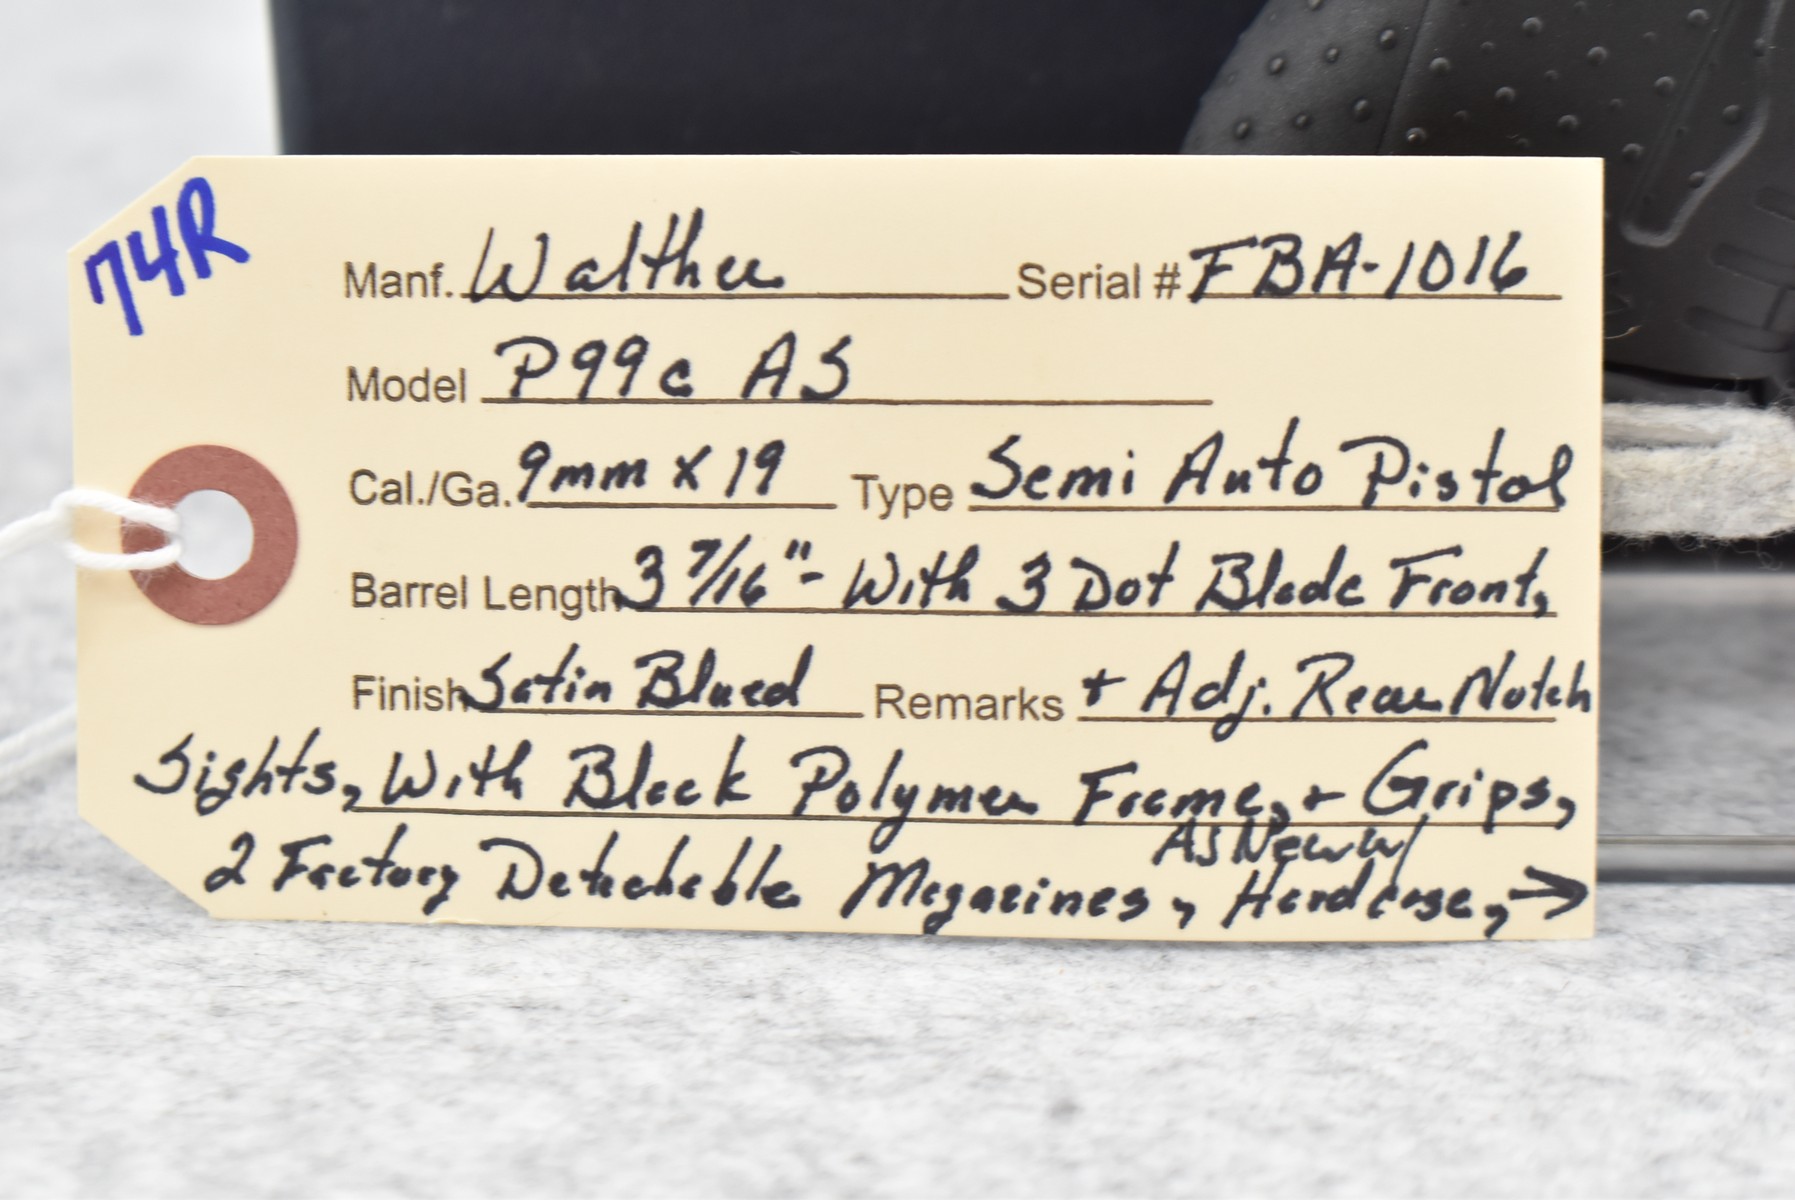 74R
Manf. Walther Serial # FBA-1016
Model P99c AS
Cal./Ga. 9mm x 19 Type Semi Auto Pistol
Barrel Length 3 7/16"- With 3 Dot Blade Front,
Finish Satin Blued Remarks + Adj. Rear Notch
Sights, With Black Polymer Frame, + Grips,
As New w/
2 Factory Detachable Magazines, Hardcase, →